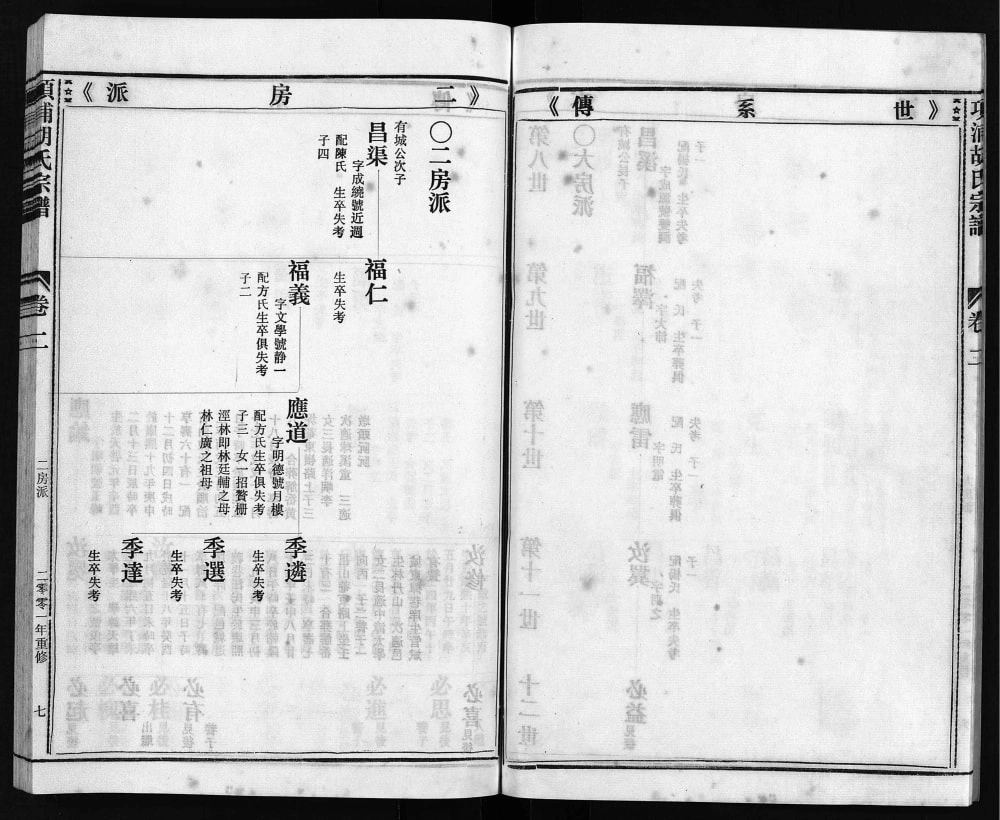 項浦胡氏宗譜
卷三
《世系傳》
《二房派》
〇二房派
有城公次子
昌渠
字成繞號近週
配陳氏 生卒失考
子四
福仁
生卒失考
福義
字文學號静一
配方氏生卒俱失考
子二
應道
字明德號月樓
配方氏生卒俱失考
子三 女一招贅柵
涇林即林廷輔之母
林仁廣之祖母
季遴
生卒失考
季選
生卒失考
季達
生卒失考
項浦胡氏宗譜
卷
二房派
二零零一年重修
七